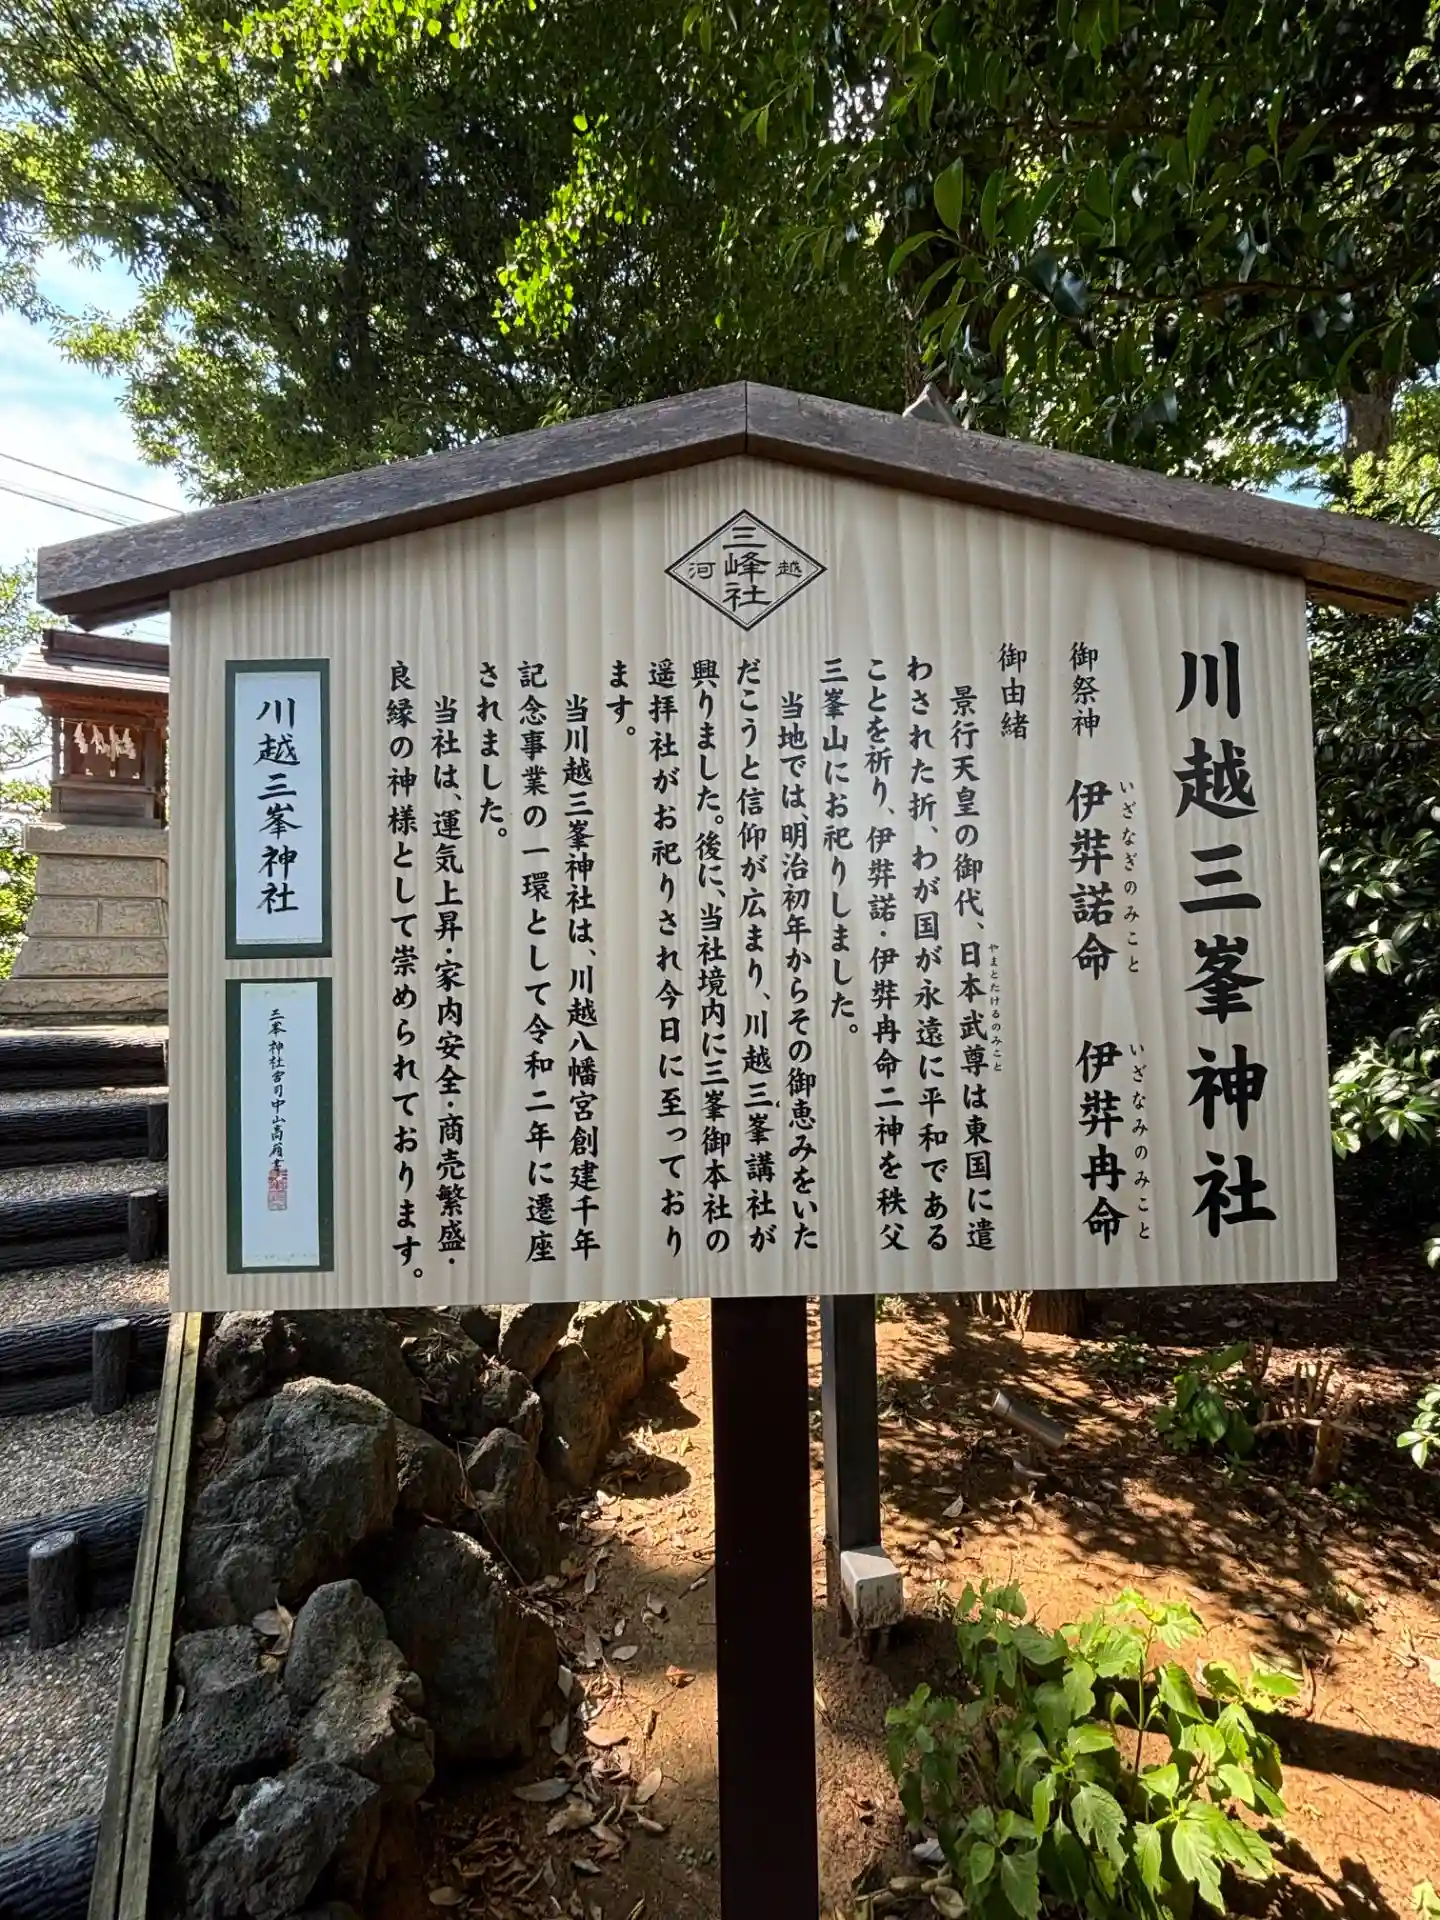 三峰社
河越
川越三峯神社
御祭神 伊弉諾命 伊弉冉命
いざなぎのみこと いざなみのみこと
御由緒
景行天皇の御代、日本武尊は東国に遣
やまとたけるのみこと
わされた折、わが国が永遠に平和である
ことを祈り、伊弉諾・伊弉冉命二神を秩父
三峯山にお祀りしました。
当地では、明治初年からその御恵みをいた
だこうと信仰が広まり、川越三峯講社が
興りました。後に、当社境内に三峯御本社の
遥拝社がお祀りされ今日に至っており
ます。
当川越三峯神社は、川越八幡宮創建千年
記念事業の一環として令和二年に遷座
されました。
当社は、運気上昇・家内安全・商売繁盛・
良縁の神様として崇められております。
川越三峯神社
三峯神社宮司中山高嶺書